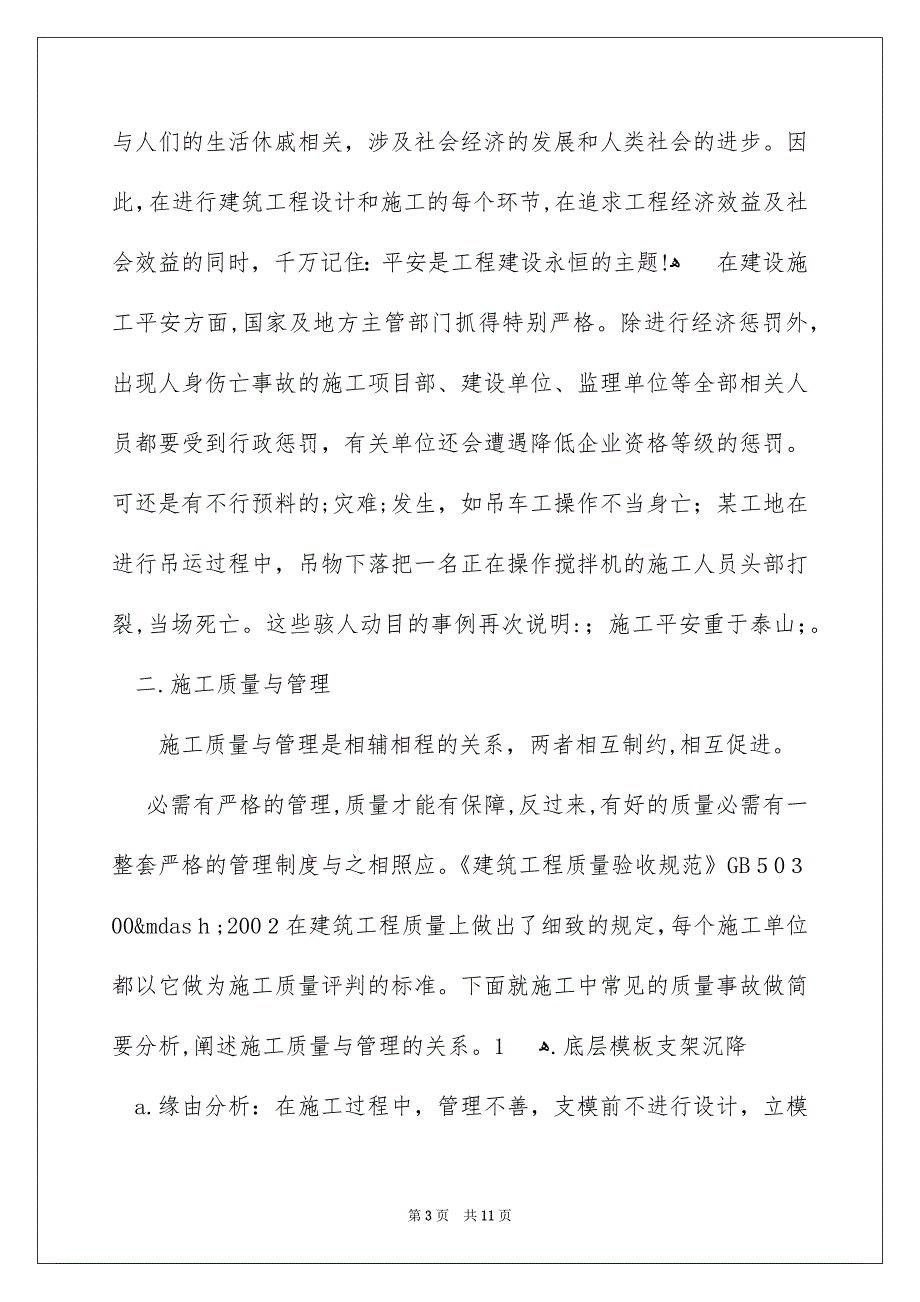 与人们的生活休戚相关，涉及社会经济的发展和人类社会的进步。因
此,在进行建筑工程设计和施工的每个环节,在追求工程经济效益及社
会效益的同时，千万记住：平安是工程建设永恒的主题!ﻫ 在建设施
工平安方面,国家及地方主管部门抓得特别严格。除进行经济惩罚外，
出现人身伤亡事故的施工项目部、建设单位、监理单位等全部相关人
员都要受到行政惩罚，有关单位还会遭遇降低企业资格等级的惩罚。
可还是有不行预料的;灾难;发生，如吊车工操作不当身亡；某工地在
进行吊运过程中，吊物下落把一名正在操作搅拌机的施工人员头部打
裂,当场死亡。这些骇人动目的事例再次说明:；施工平安重于泰山;。
二.施工质量与管理
施工质量与管理是相辅相程的关系，两者相互制约,相互促进。
必需有严格的管理,质量才能有保障,反过来,有好的质量必需有一
整套严格的管理制度与之相照应。《建筑工程质量验收规范》GB５０３
00&mdasｈ;200２在建筑工程质量上做出了细致的规定,每个施工单位
都以它做为施工质量评判的标准。下面就施工中常见的质量事故做简
要分析,阐述施工质量与管理的关系。1 ﻫ.底层模板支架沉降
a.缘由分析：在施工过程中，管理不善，支模前不进行设计，立模
第 3 页 共 11 页